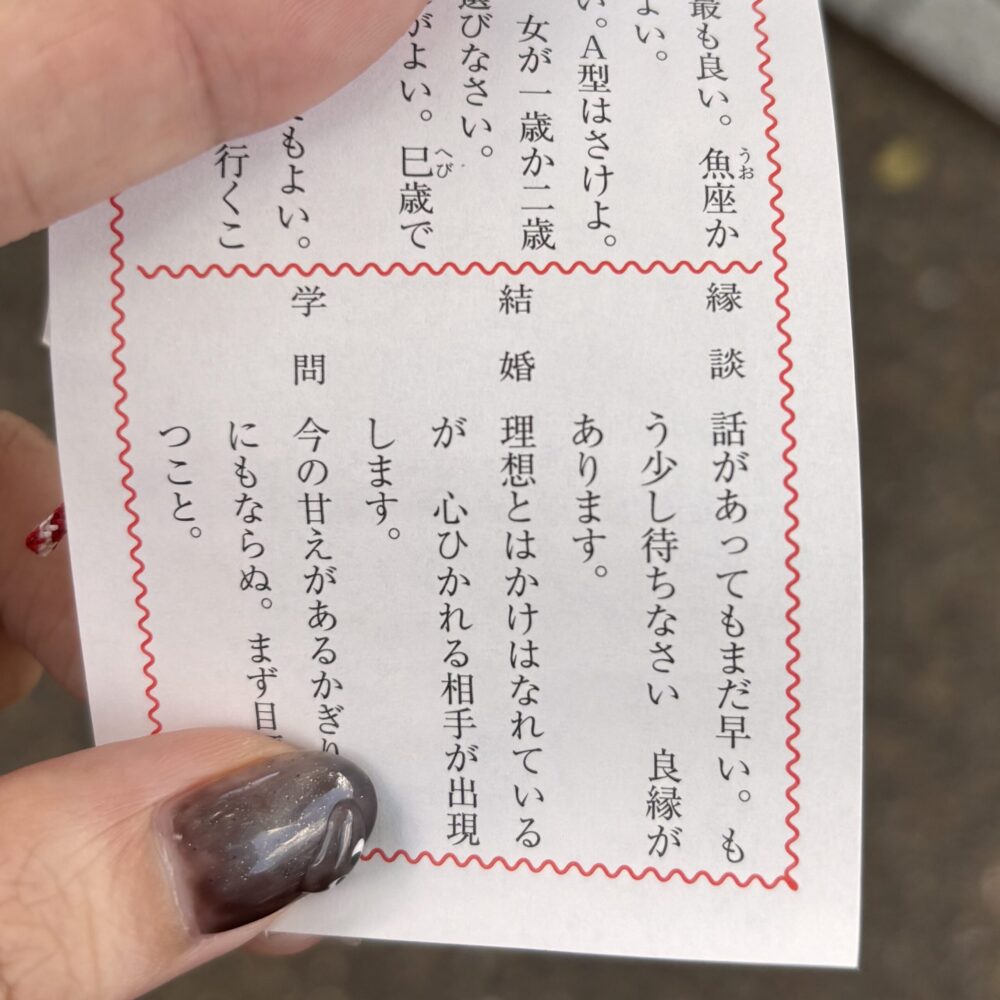 最も良い。魚座か
うお
よい。
い。A型はさけよ。
女が一歳か二歳
選びなさい。
がよい。巳歳で
へび
もよい。
行くこ
縁談 話があってもまだ早い。も
う少し待ちなさい 良縁が
あります。
結婚 理想とはかけはなれている
が 心ひかれる相手が出現
します。
学問 今の甘えがあるかぎり
にもならぬ。まず目
つこと。